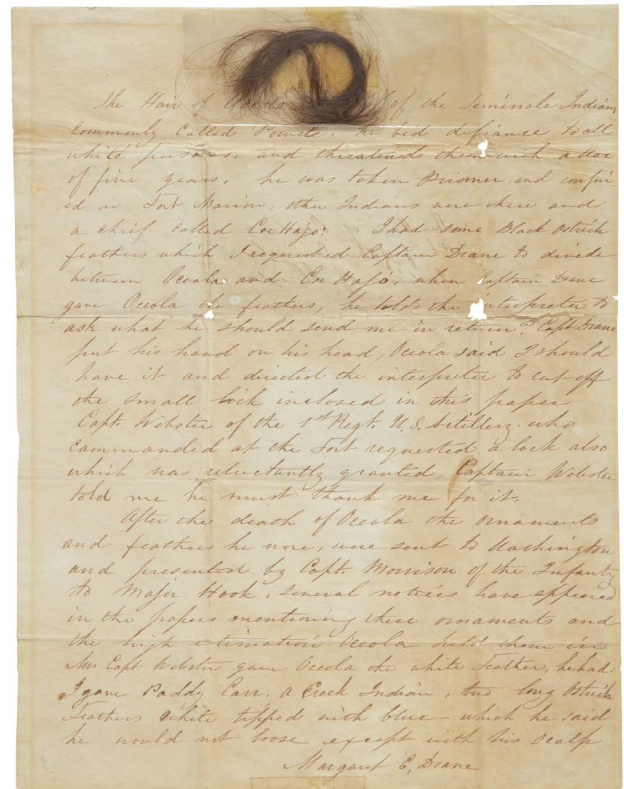 The Hair of Oceola of the Seminole Indians
commonly called Powell. he bid defiance to all
white persons, and threatened them with a war
of five years. he was taken Prisoner and confin
ed in Fort Marion, other Indians were there and
a chief called Coe Hajo: I had some Black Ostrich
feathers which I requested Captain Drane to divide
between Oceola and Coe Hajo, when Captain Drane
gave Oceola the feathers, he told the interpreter to
ask what he should send me in return? Capt Drane
put his hand on his head, Oceola said I should
have it and directed the interpreter to cut off
the small lock inclosed in this paper
Capt. Webster of the 1st Regt. U.S. Artillery. who
commanded at the Fort requested a lock also
which was reluctantly granted, Captain Webster
told me he must thank me for it.
After the death of Oceola the ornaments
and feathers he wore, were sent to Washington
and presented by Capt. Morrison of the Infantry
to Major Hook. Several notices have appeared
in the papers mentioning these ornaments and
the high estimation Oceola held them in
Mrs Capt Webster gave Oceola the white feather, he had
I gave Paddy Carr, a Creek Indian, two long Ostrich
feathers white tipped with blue - which he said
he would not loose except with his scalp
Margaret C, Drane